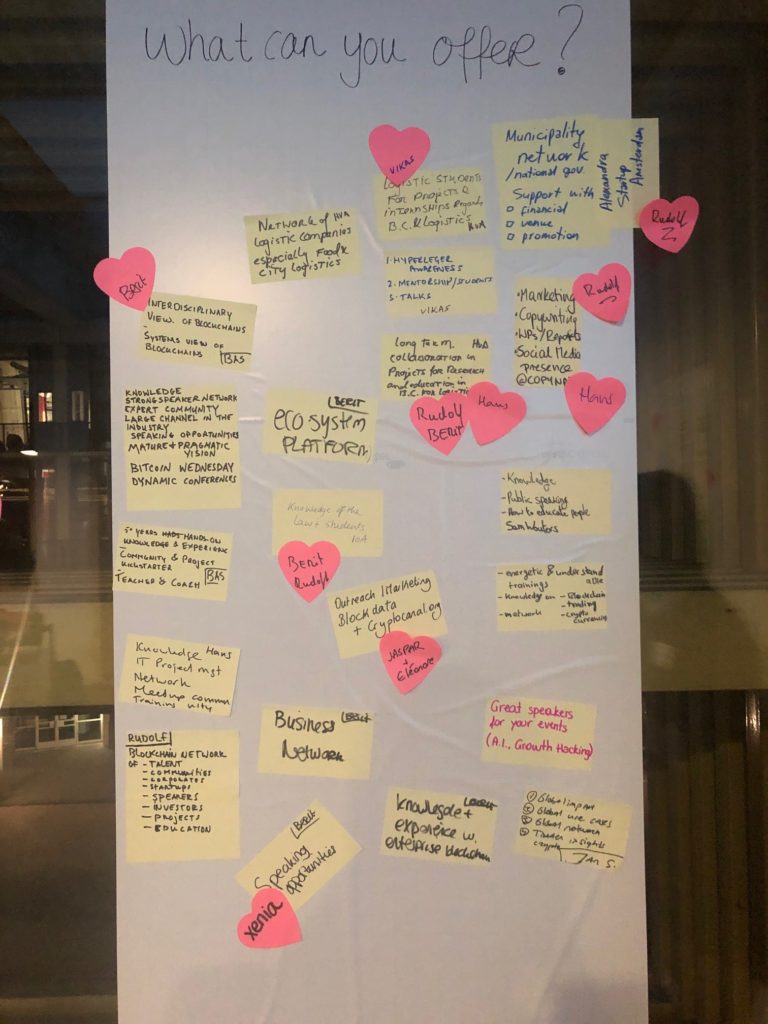 What can you offer?
VIKAS
LOGISTIC STUDENTS
FOR PROJECTS &
INTERNSHIPS
B.C. & LOGISTICS
Municipality
network
/national gov.
Support with
□ financial
□ venue
□ promotion
Alexandra
Startup
Amsterdam
Rudolf
NETWORK OF HVA
LOGISTIC COMPANIES
ESPECIALLY FOOD &
CITY LOGISTICS
1. HYPERLEGER
AWARENESS
2. MENTORSHIP/STUDENTS
3. TALKS
VIKAS
Berit
INTERDISCIPLINARY
VIEW OF BLOCKCHAINS
-
SYSTEMS VIEW OF
BLOCKCHAINS BAS
Rudolf
• Marketing
• Copywriting
• WPs/Reports
• Social Media
presence
Hans
Long term HvA
collaboration in
Projects for Research
and education in
B.C. FOR
Rudolf
BERIT
Hans
KNOWLEDGE
STRONG SPEAKER NETWORK
EXPERT COMMUNITY
LARGE CHANNEL IN THE
INDUSTRY
SPEAKING OPPORTUNITIES
MATURE + PRAGMATIC
VISION
BITCOIN WEDNESDAY
DYNAMIC CONFERENCES
BERIT
ecosystem
PLATFORM
Knowledge of the
Law + students
- Knowledge
- Public speaking
- How to educate people
5+ YEARS HANDS-ON
KNOWLEDGE & EXPERIENCE
COMMUNITY & PROJECT
KICKSTARTER
TEACHER & COACH BAS
BERIT
Rudolf
Outreach / Marketing
Blockdata
+ Cryptocanal.org
JASPAR
+
Eléonore
- energetic & understandable
trainings
- knowledge on - Blockchain
- trading
- crypto
currencies
- network
Knowledge Hans
IT Project mgt
Network
Meetup community
Training
Business
Network
Berit
Great speakers
for your events
(A.I., Growth Hacking)
RUDOLF
BLOCKCHAIN NETWORK
OF - TALENT
- COMMUNITIES
- CORPORATES
- STARTUPS
- SPEAKERS
- INVESTORS
- PROJECTS
- EDUCATION
Berit
Speaking
opportunities
xenia
knowledge +
experience w.
enterprise blockchain
① Global
② Global use cases
③ Global network
insights
crypto
JAN S.